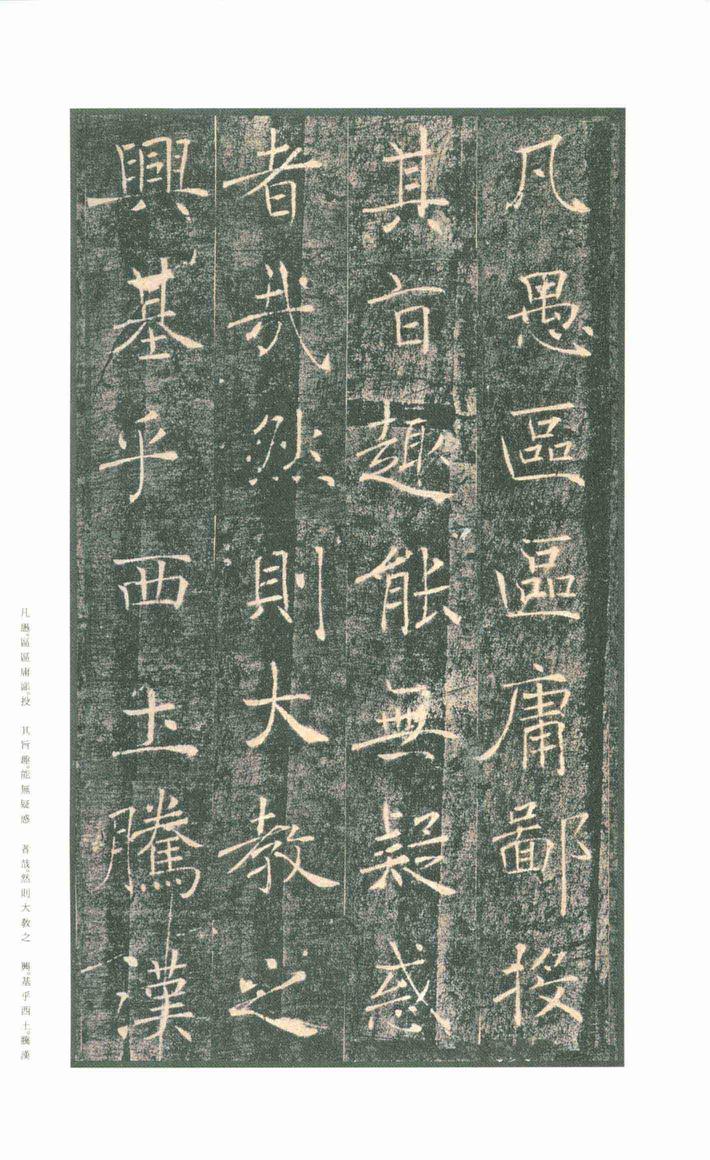 凡愚區區庸鄙投
其旨趣能無疑惑
者哉然則大教之
興基乎西土騰漢
凡愚。區區庸鄙。投 其旨趣。能無疑惑 者哉。然則大教之 興。基乎西土。騰漢